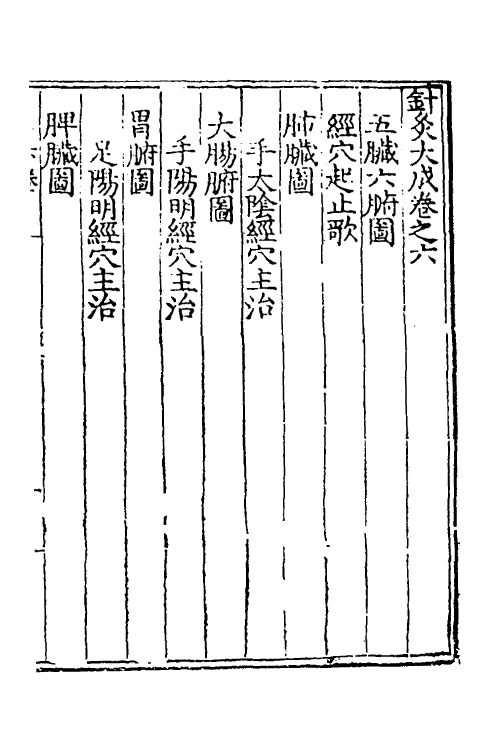 針灸大成卷之六
五臟六腑圖
經穴起止歌
肺臟圖
手太陰經穴主治
大腸腑圖
手陽明經穴主治
胃腑圖
足陽明經穴主治
脾臟圖